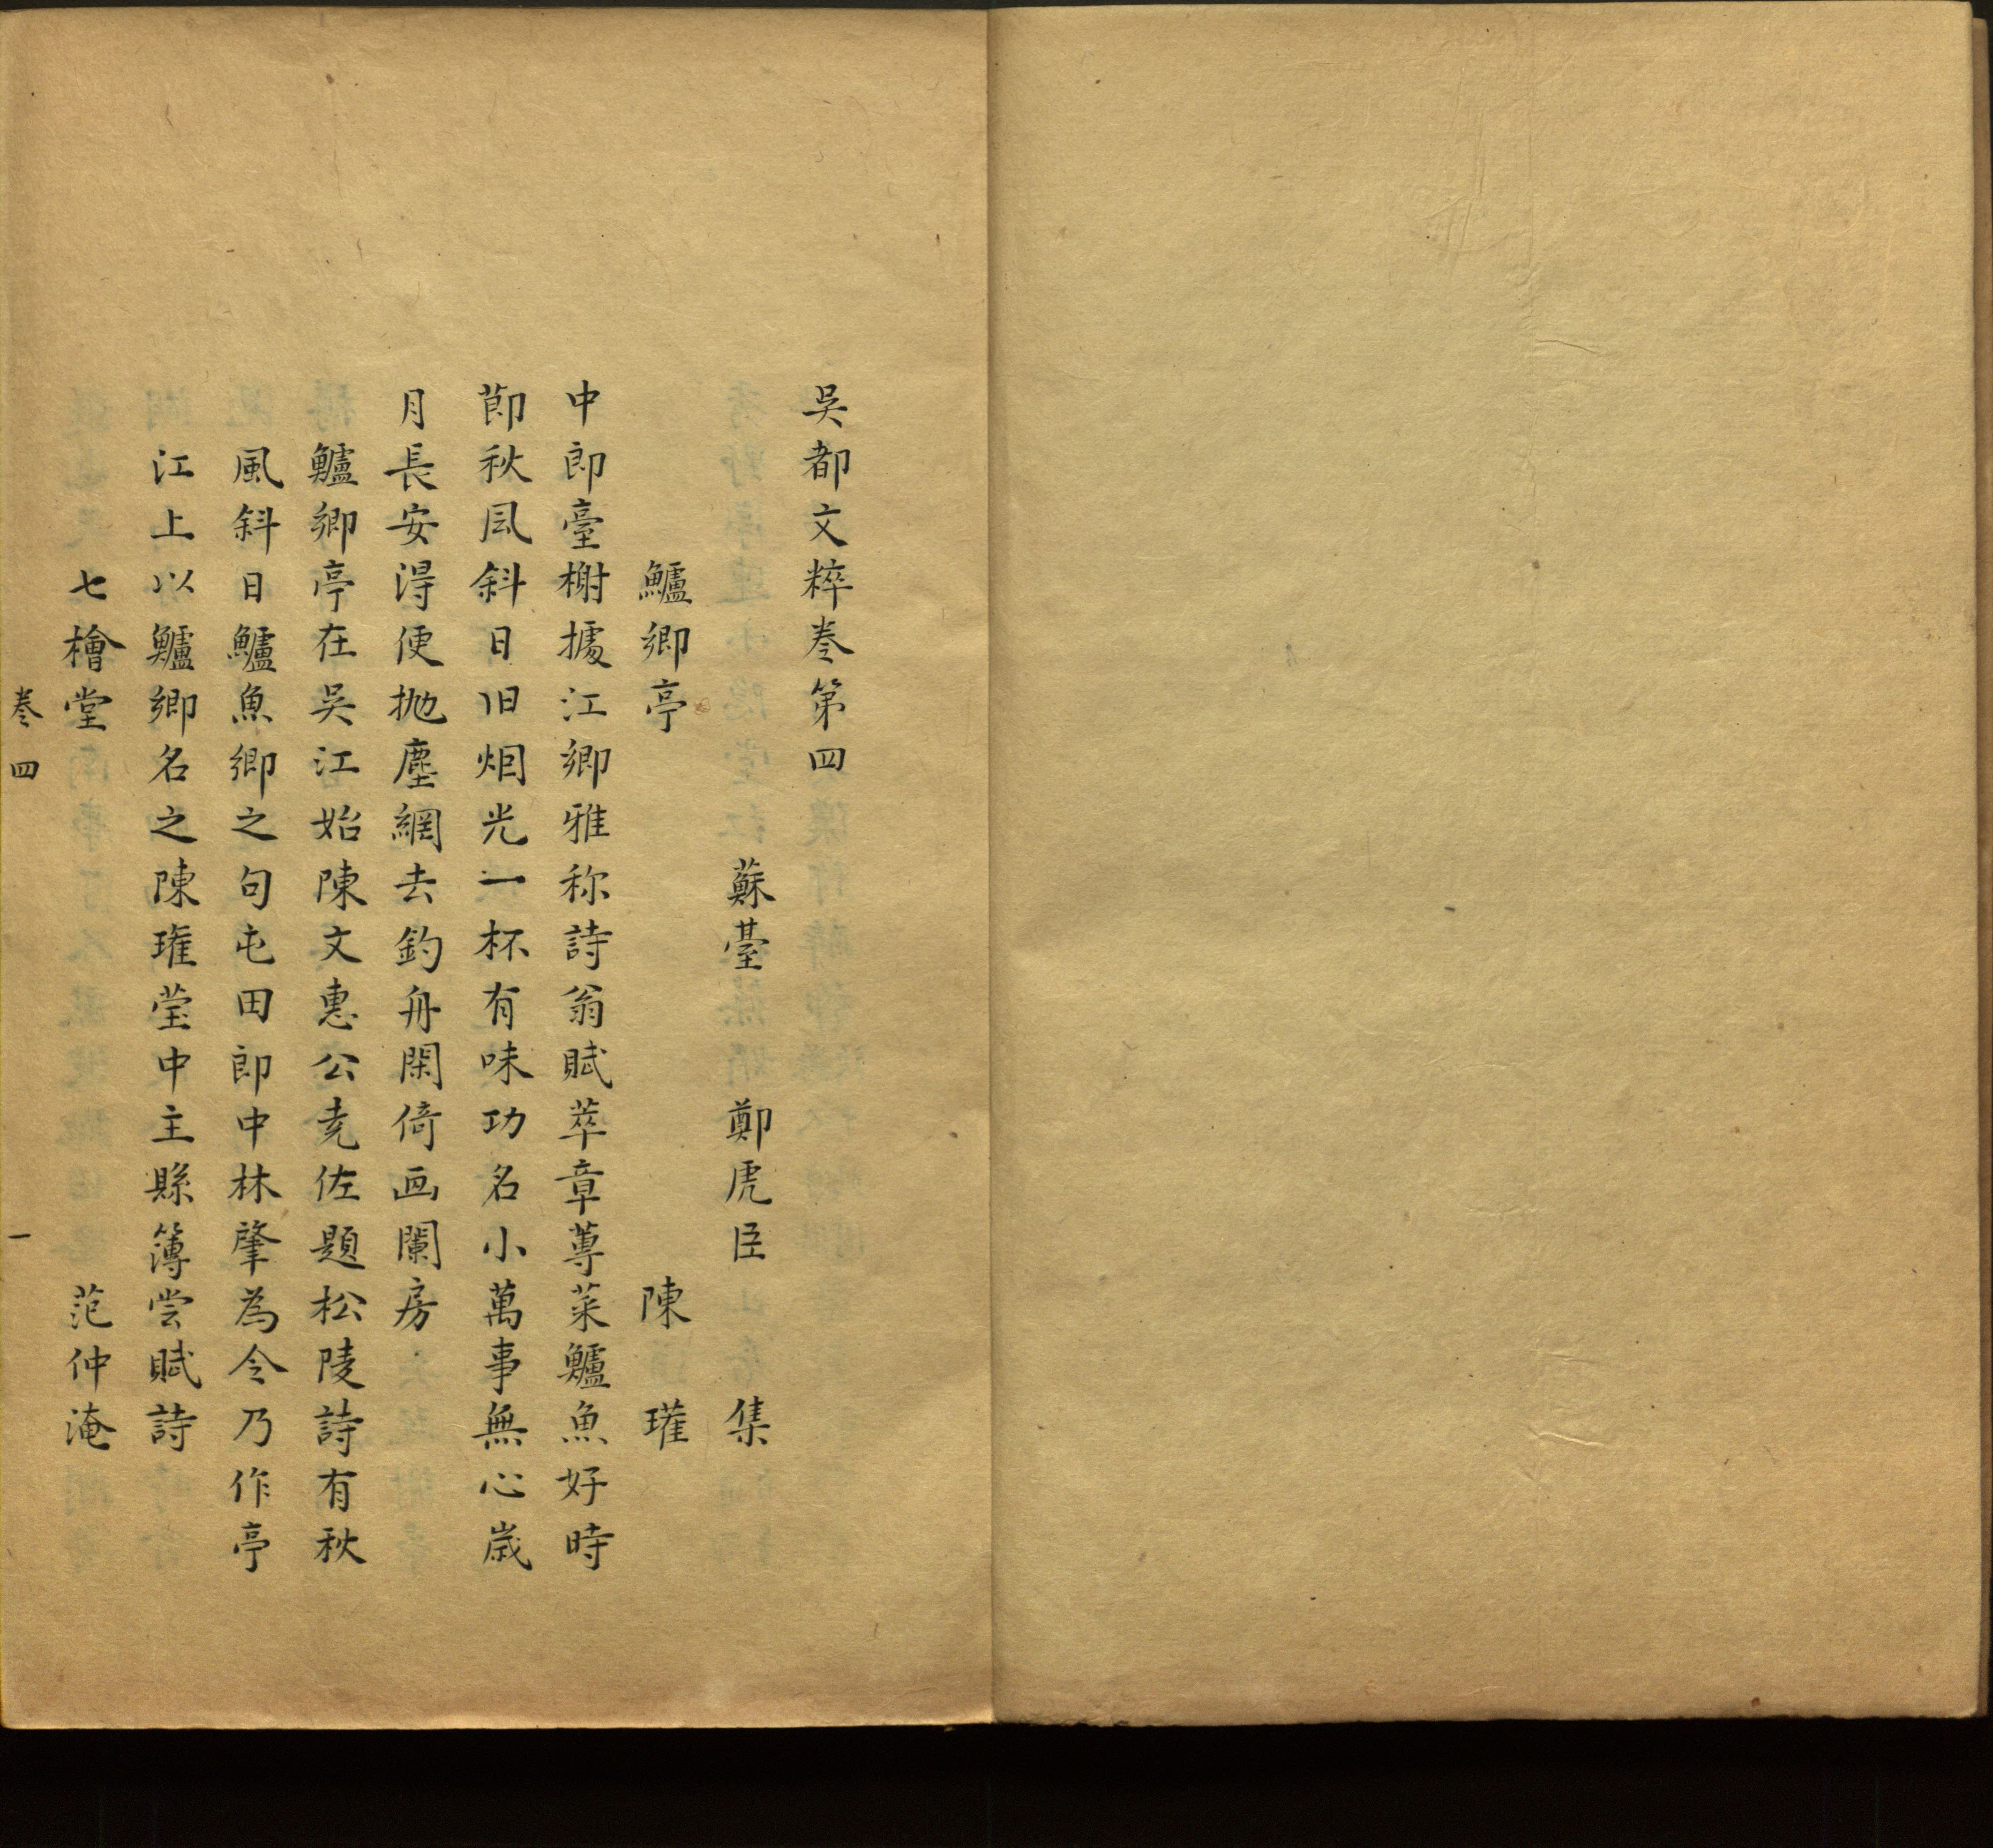 吳都文粹卷第四
蘇臺 鄭虎臣 集
鱸鄉亭 陳瓘
中郎臺榭據江鄉雅称詩翁賦萃章蓴菜鱸魚好時
節秋風斜日旧烟光一杯有味功名小萬事無心歲
月長安得便抛塵網去釣舟閑倚画闌房
鱸鄉亭在吳江始陳文惠公尭佐題松陵詩有秋
風斜日鱸魚鄉之句屯田郎中林肇為令乃作亭
江上以鱸鄉名之陳瓘瑩中主縣簿嘗賦詩
七檜堂 范仲淹
卷四 一